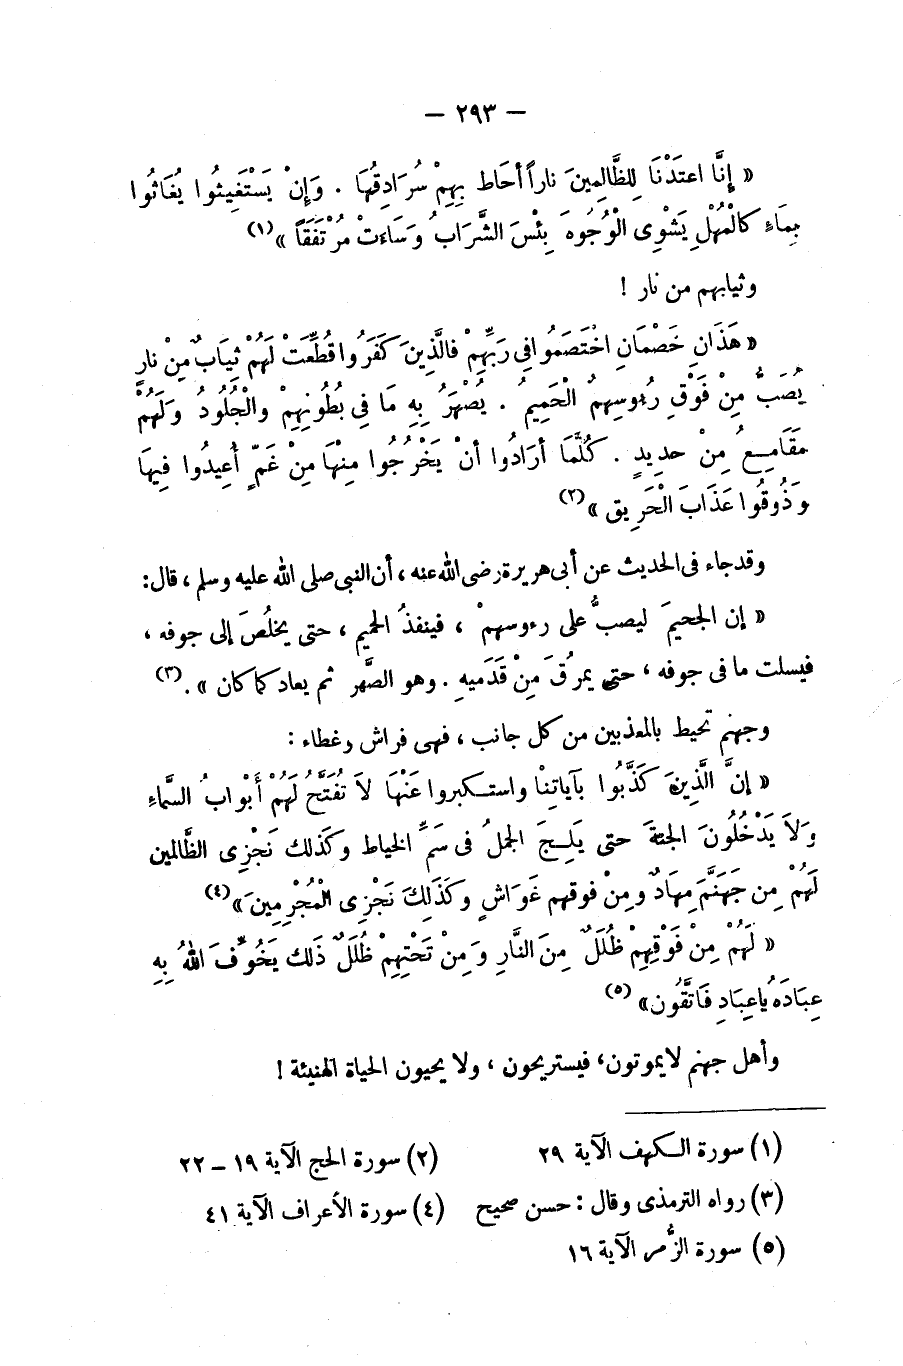 — ٢٩٣ —
« إِنَّا اعتَدْنَا لِلظَّالِمِينَ ناراً أحَاط بِهِمْ سُرَادِقُهَا . وَإِنْ يَسْتَغِيثُوا يُغَاثُوا
بِمَاءٍ كَالْمُهْلِ يَشْوِى الْوُجُوهَ بِئْسَ الشَّرَابُ وَسَاءَتْ مُرْتَفَقَاً »(١)
وثيابهم من نار !
« هَذَانِ خَصْمَانِ اخْتَصَمُوا فِى رَبِّهِمْ فالَّذِينَ كَفَرُوا قُطِّعَتْ لَهُمْ ثِيَابٌ مِنْ نارٍ
يُصَبُّ مِنْ فَوْقِ رُءوسِهِمُ الْحَمِيمُ . يُصْهَرُ بِهِ مَا فِى بُطُونِهِمْ والْجُلُودُ وَلَهُمْ
مَقَامِعُ مِنْ حديدٍ . كُلَّمَا أرَادُوا أنْ يَخْرُجُوا مِنْهَا مِنْ غَمٍّ أُعِيدُوا فِيهَا
وَذُوقُوا عَذَابَ الْحَرِيق »(٢)
وقد جاء فى الحديث عن أبى هريرة رضى الله عنه ، أن النبى صلى الله عليه وسلم ، قال :
« إن الجحيمَ ليصبُّ على رءوسهمْ ، فينفذُ الحميم ، حتى يخلُصَ إلى جوفه ،
فيسلت ما فى جوفه ، حتى يمرُقَ مِنْ قَدَميهِ . وهو الصَّهر ثم يعاد كما كان » . (٣)
وجهنم تحيط بالمعذبين من كل جانب ، فهى فراش وغطاء :
« إنَّ الَّذِينَ كَذَّبُوا بآيَاتِنَا واستكبروا عَنْهَا لاَ تُفَتَّحُ لَهُمْ أَبْوابُ السَّمَاءِ
وَلاَ يَدْخُلُونَ الجنةَ حتى يَلِجَ الجملُ فى سَمِّ الخياط وكَذلك نَجْزِى الظَّالمين
لَهُمْ مِن جَهَنَّمَ مِهَادٌ ومِنْ فوقهم غَوَاشٍ وكَذَلِكَ نَجْزِى المُجْرِمِينَ »(٤)
« لَهُمْ مِنْ فَوْقِهِمْ ظُلَلٌ مِنَ النَّارِ وَمِنْ تَحْتِهِمْ ظُلَلٌ ذَلك يَخُوِّفُ اللهُ بِهِ
عِبَادَهُ ياعِبَادِ فَاتَّقُون »(٥)
وأهل جهنم لا يموتون ، فيستريحون ، ولا يحيون الحياة الهنيئة !
(١) سورة الكهف الآية ٢٩ (٢) سورة الحج الآية ١٩ – ٢٢
(٣) رواه الترمذى وقال : حسن صحيح (٤) سورة الأعراف الآية ٤١
(٥) سورة الزُّمر الآية ١٦